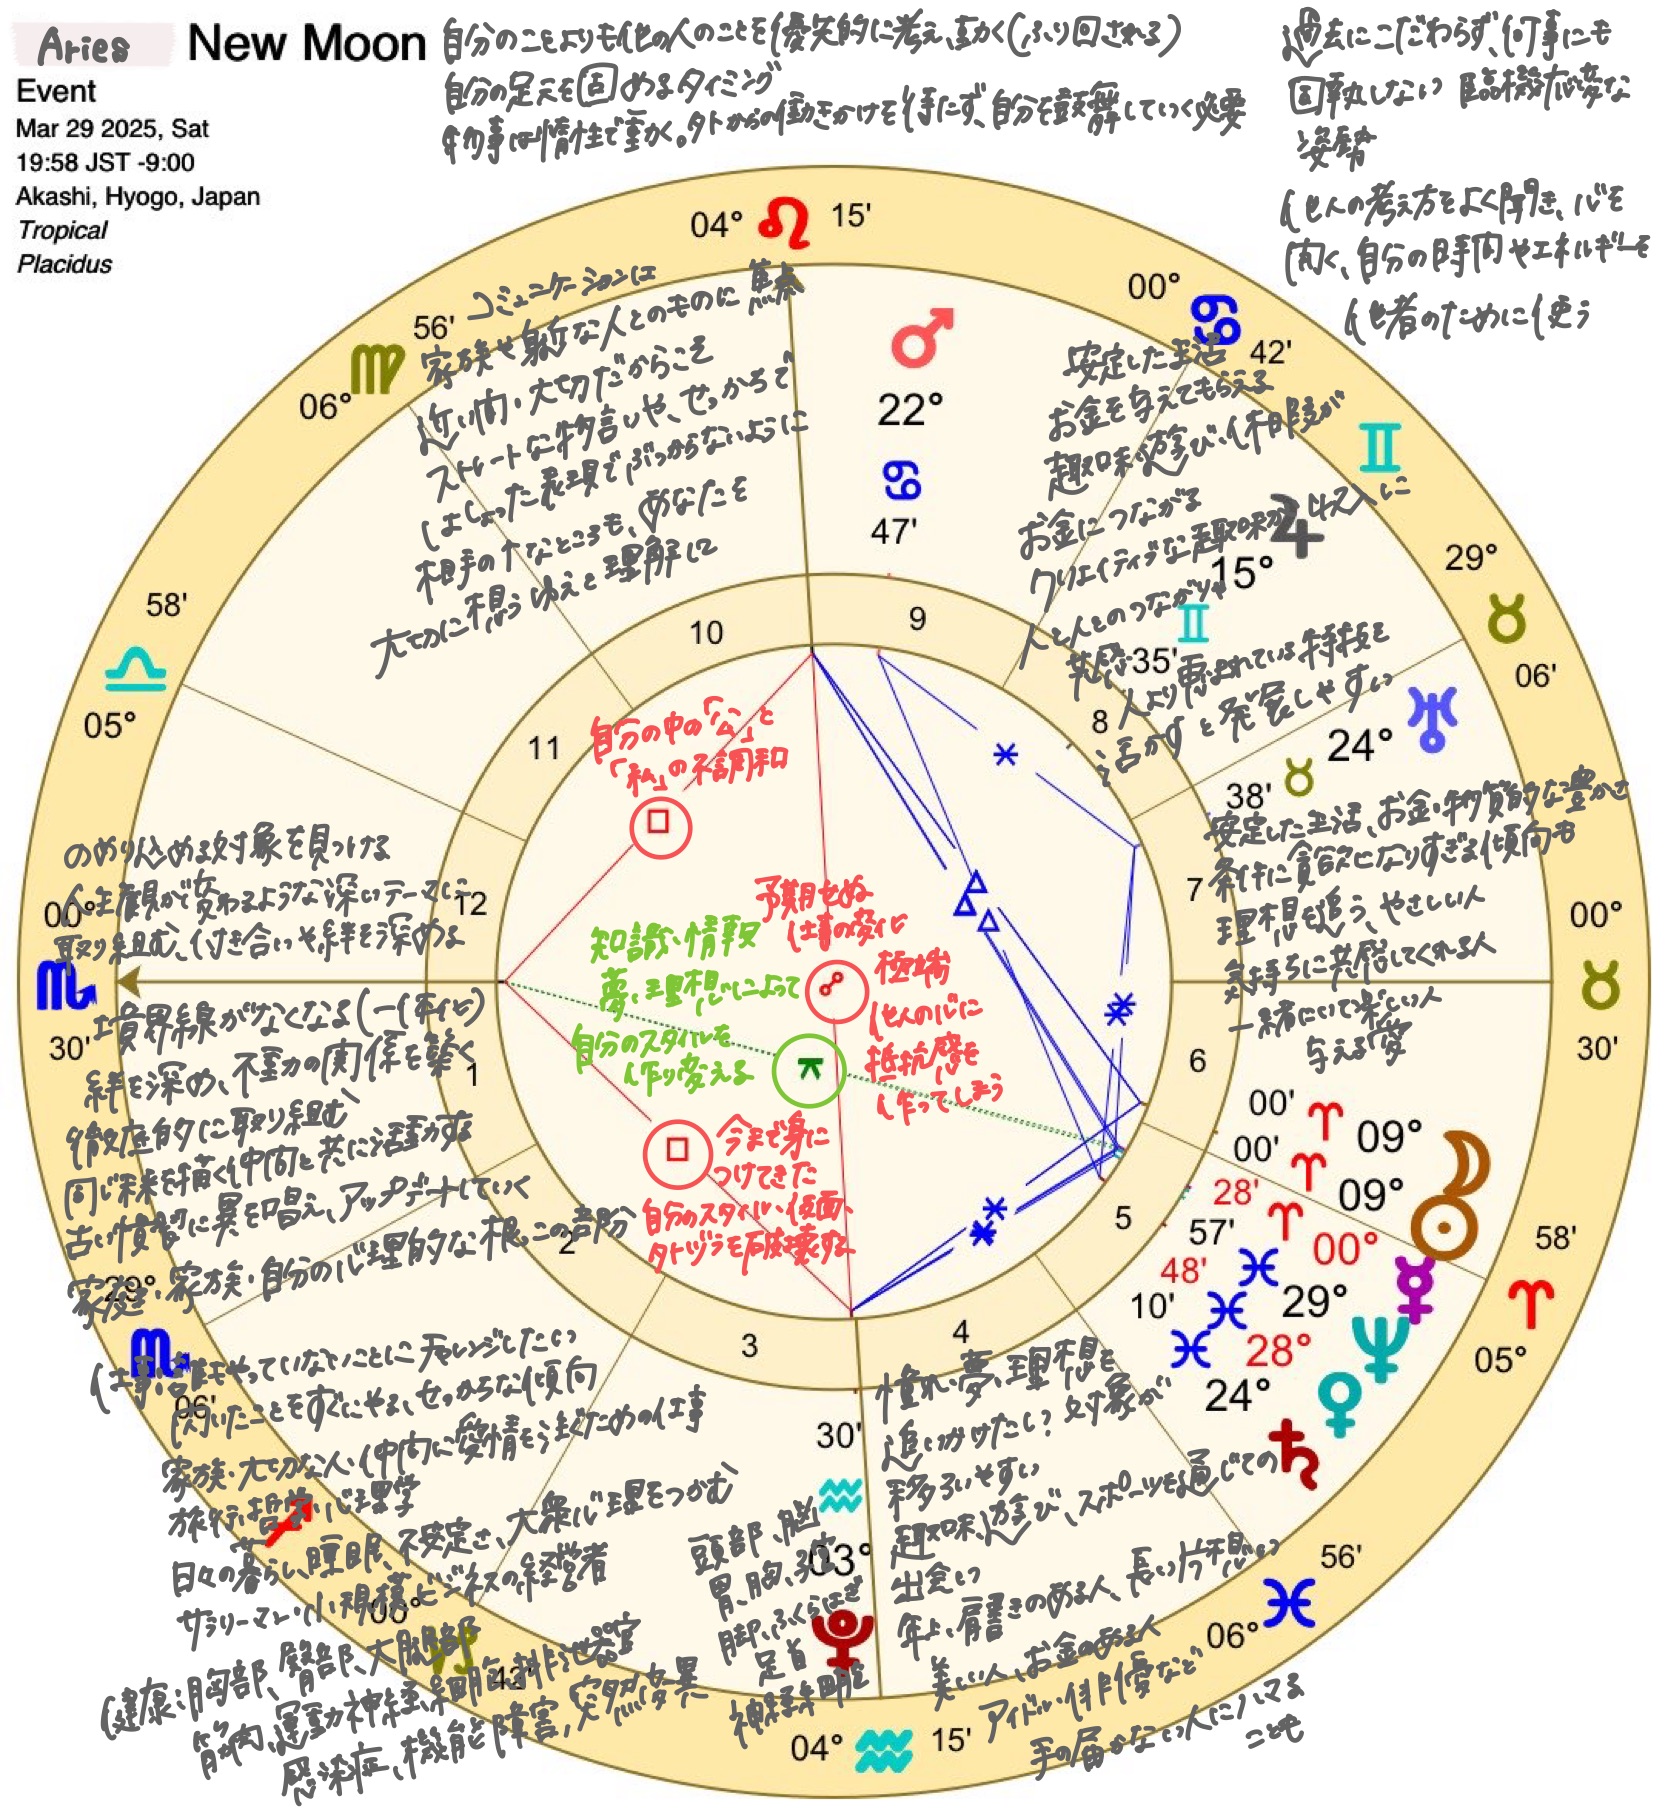 Aries New Moon
Event
Mar 29 2025, Sat
19:58 JST -9:00
Akashi, Hyogo, Japan
Tropical
Placidus
自分のことよりも他の人のことを優先的に考え、動く(ふり回される)
自分の足元を固めるタイミング
物事は惰性で動く。外からの働きかけを待たず、自分を鼓舞していく必要
過去にこだわらず、何事にも
固執しない 臨機応変な
姿勢
他人の考え方をよく聞き、心を
開く、自分の時間やエネルギーを
他者のために使う
04° ♌ 15'
00° ♋ 42'
♊
29° ♉ 06'
00° ♉ 30'
58' ♈ 05°
56' ♓ 06°
04° ♒ 15'
06° ♍ 56'
58' ♎ 05°
00° ♏ 30'
29° ♏ 06'
♐
00° ♑ 42'
コミュニケーションは
家族や身近な人とのものに焦点
近い間・大切だからこそ
ストレートな物言いや、せっかちで
はしょった表現でぶつからないように
相手の↑なところも、あなたを
大切に想うゆえと理解して
♂
22°
♋
47'
安定した生活
お金を与えてもらえる
趣味や遊び、休暇が
お金につながる
クリエイティブな趣味が収入に
人と人とのつながりや
共感
人より恵まれている特技を
活かすと発展しやすい
♃ 15° ♊ 35'
♅ 24° ♉ 38'
安定した生活、お金・物質的な豊かさ
条件に貪欲になりすぎる傾向も
理想を追う、やさしい人
気持ちに共感してくれる人
一緒にいて楽しい人
与える愛
のめり込める対象を見つける
人生観が変わるような深いテーマに
取り組む、付き合いや絆を深める
境界線がなくなる(一体化)
絆を深め、不動の関係を築く
徹底的に取り組む
同じ未来を描く仲間と共に活動する
古い慣習に異を唱え、アップデートしていく
家庭・家族・自分の心理的な根っこの部分
自分の中の「公」と
「私」の不調和
□
予期せぬ
仕事の変化
知識・情報
夢・理想によって
自分のスタイルを
作り変える
⚻
☍
極端
他人の心に
抵抗感を
作ってしまう
□
今まで身に
つけてきた
自分のスタイル・仮面、
外ヅラを破壊する
1
2
3
4
5
6
7
8
9
10
11
12
00' ♈ 09° ☽
00' ♈ 09° ☉
28' ♈ 00° ☿
57' ♓ 29° ♆
48' ♓ 28° ♀
10' ♓ 24° ♄
仕事:誰もやっていないことにチャレンジしたい
閃いたことをすぐにやる、せっかちな傾向
家族・大切な人・仲間に愛情を注ぐための仕事
旅行、哲学、心理学
日々の暮らし、睡眠、不安定さ、大衆心理をつかむ
サラリーマン・小規模ビジネスの経営者
健康:胸部、臀部、大腿部
筋肉、運動神経、細胞、排泄器官
感染症、機能障害、突然変異
30'
♒
03°
♇
頭部、脳
胃、胸、子宮
脚、ふくらはぎ
足首
神経細胞
憧れ・夢・理想を
追いかけたい?対象が
移ろいやすい
趣味、遊び、スポーツを通じての
出会い
年上、肩書きのある人、長い片想い
美しい人、お金のある人
アイドル・俳優など
手の届かない人にハマる
ことも